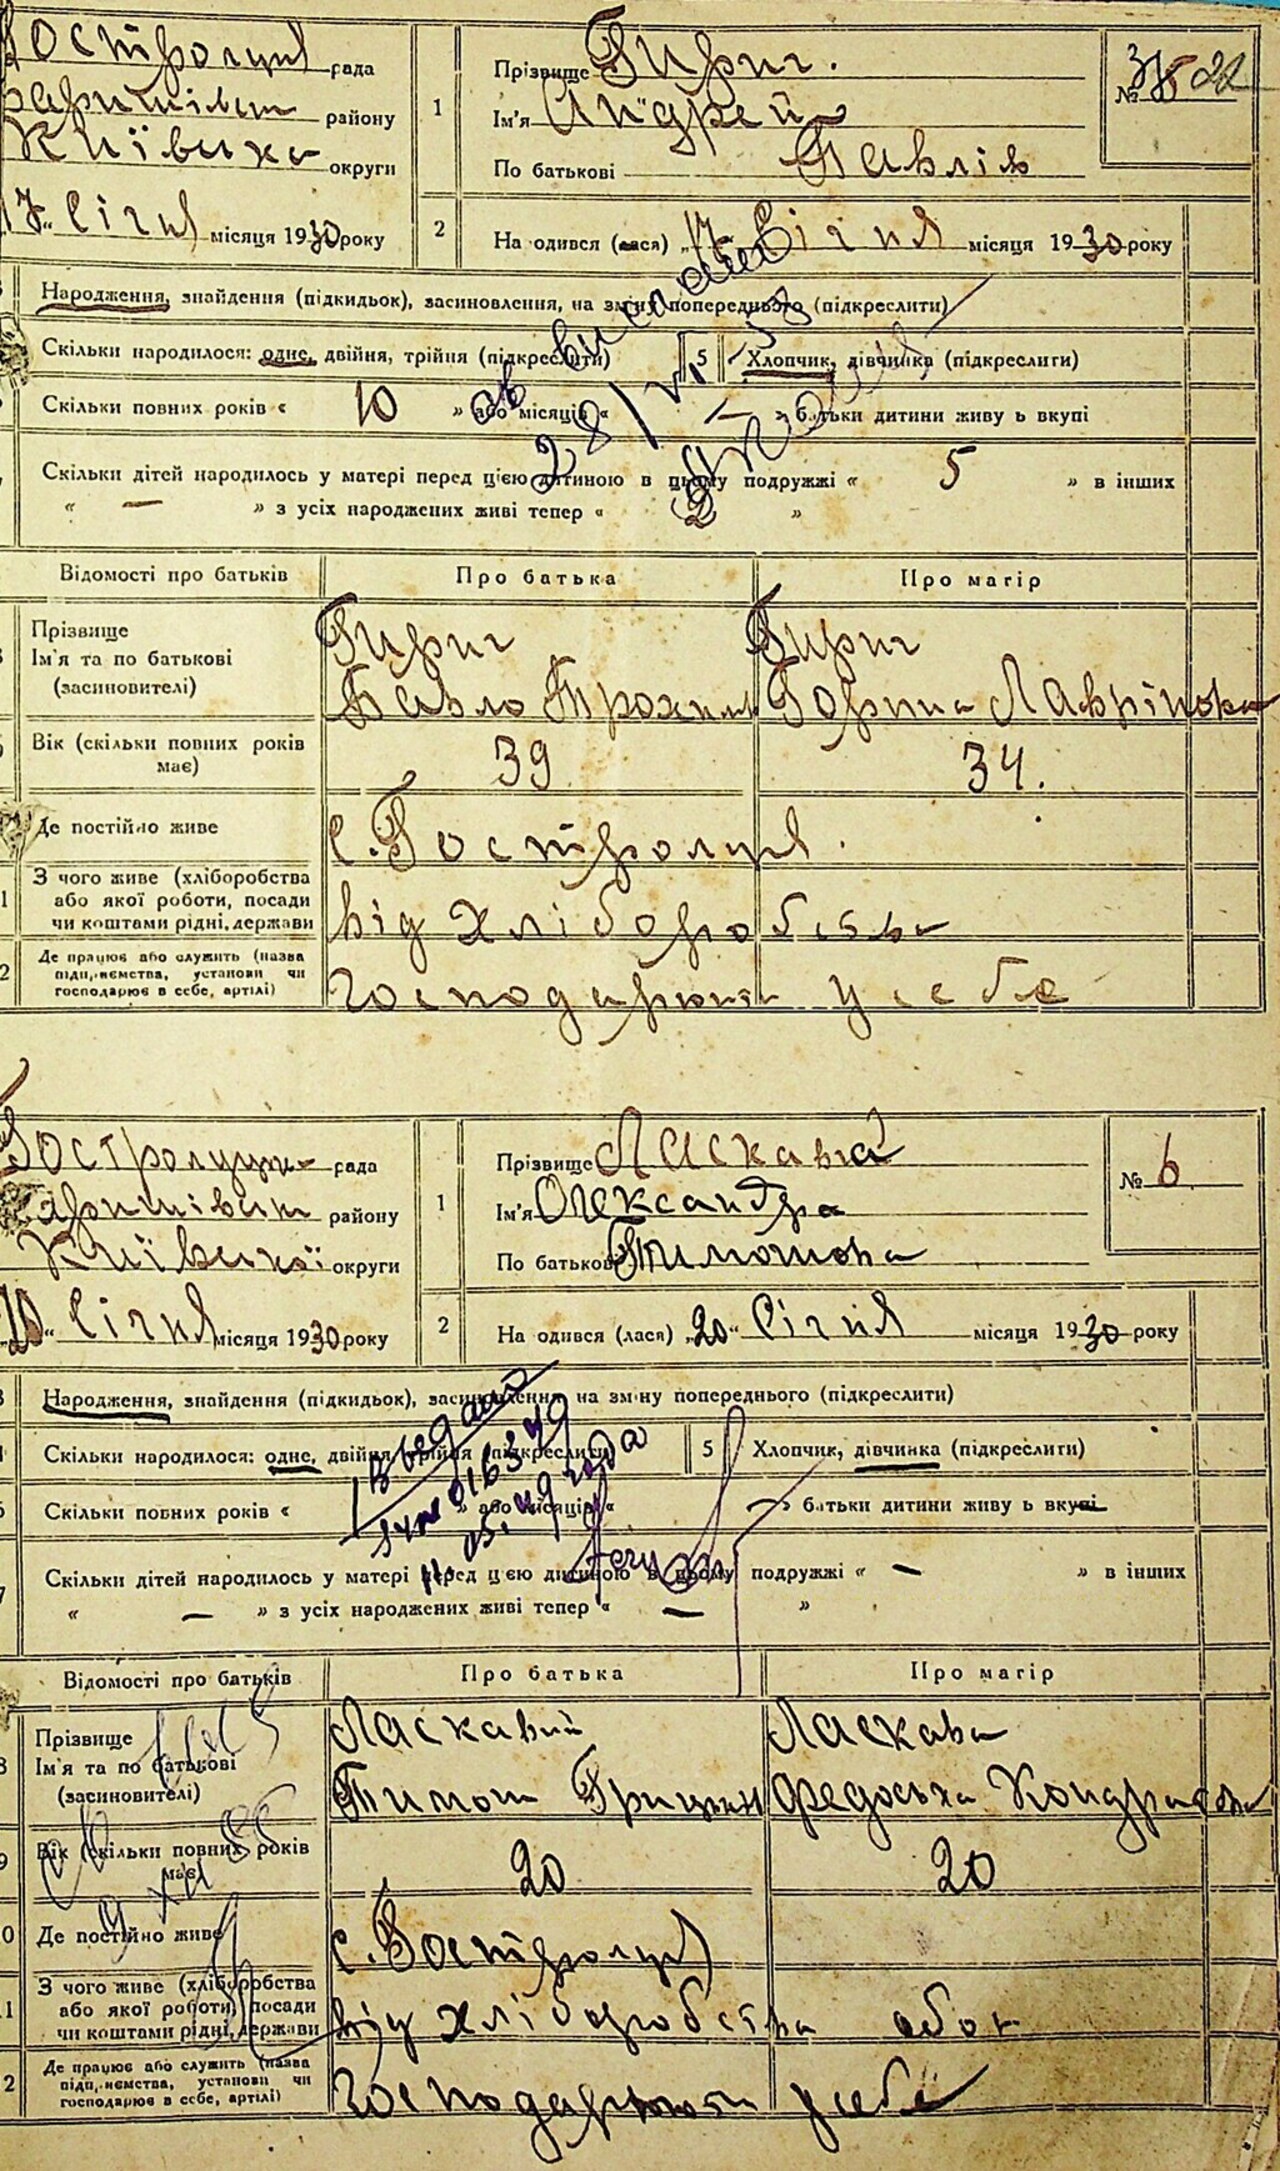 Гостролуцька рада
Баришівськ району
Київська округи
17 Січня місяця 1930 року
1
Прізвище Гирич.
Ім'я Андрей
По батькові Павлів
№ 5
2
На одився (лася) „17“ Січня місяця 1930 року
Народження, знайдення (підкидьок), засиновлення, на зміну попереднього (підкреслити)
Скільки народилося: одне, двійня, трійня (підкреслити)
5 Хлопчик, дівчинка (підкреслити)
Скільки повних років « 10 » або місяців « — » батьки дитини живу ь вкупі
Скільки дітей народилось у матері перед цією дитиною в цьому подружжі « 5 » в інших
« — » з усіх народжених живі тепер « 2 »
Відомості про батьків Про батька Про матір
Прізвище Гирич Гирич
Ім'я та по батькові
(засиновителі) Павло Трохим Горпина Лаврінова
Вік (скільки повних років має) 39 34.
Де постійно живе с. Гостролуця.
З чого живе (хліборобства
або якої роботи, посади
чи коштами рідні, держави від хліборобства
Де працює або служить (назва
підприємства, установи чи
господарює в себе, артілі) господарюють у себе
Гостролуцька рада
Баришівськ району
Київської округи
„20“ Січня місяця 1930 року
1
Прізвище Ласкава
Ім'я Олександра
По батькові Тимошова
№ 6.
2
На одився (лася) „20“ Січня місяця 1930 року
Народження, знайдення (підкидьок), засиновлення, на зміну попереднього (підкреслити)
Скільки народилося: одне, двійня, трійня (підкреслити)
5 Хлопчик, дівчинка (підкреслити)
Скільки повних років « » або місяців « — » батьки дитини живу ь вкупі
Скільки дітей народилось у матері перед цією дитиною в цьому подружжі « — » в інших
« — » з усіх народжених живі тепер « — »
Відомості про батьків Про батька Про матір
Прізвище Ласкавий Ласкава
Ім'я та по батькові
(засиновителі) Тимош Гриців Федоська Кондратова
Вік (скільки повних років має) 20 20
Де постійно живе с. Гостролуця
З чого живе (хліборобства
або якої роботи, посади
чи коштами рідні, держави від хліборобства обоє
Де працює або служить (назва
підприємства, установи чи
господарює в себе, артілі) господарюють у себе